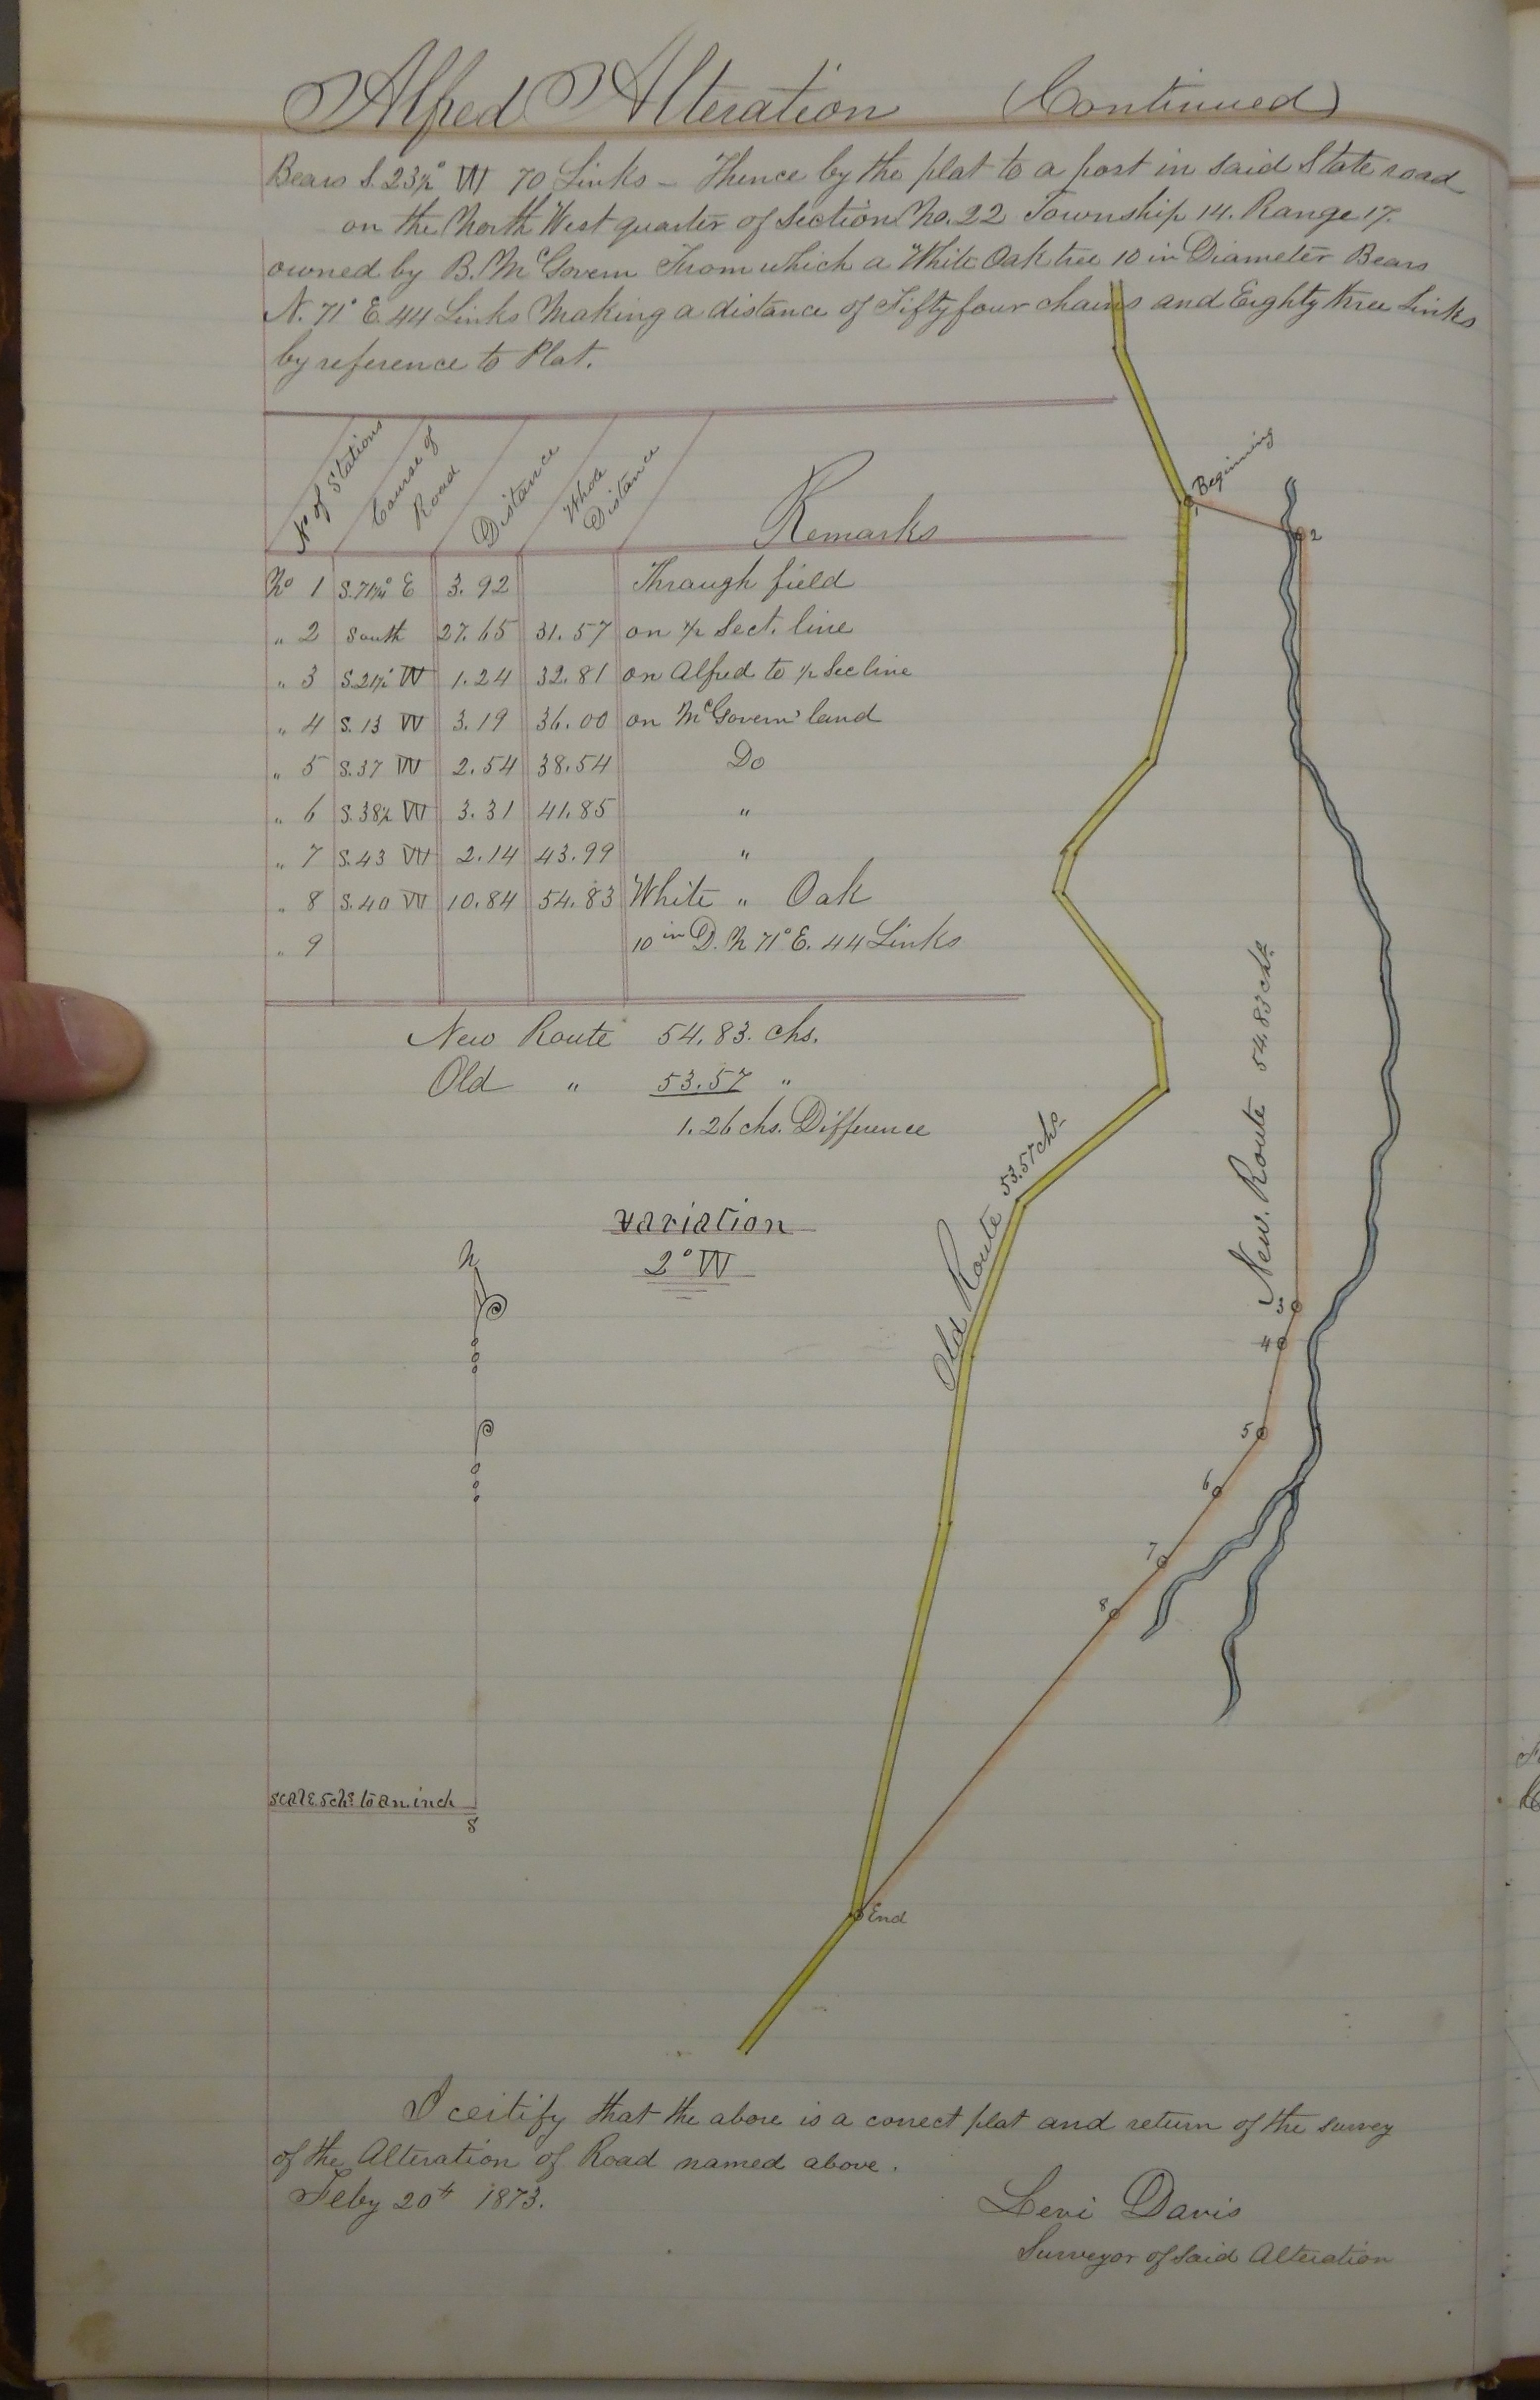 Alfred Alteration (Continued)
Bears S. 23½° W 70 Links – Thence by the plat to a post in said State road
on the North West quarter of Section No. 22 Township 14. Range 17.
owned by B. McGovern From which a White Oak tree 10 in Diameter Bears
N. 71° E. 44 Links Making a distance of Fifty four chains and Eighty three Links
by reference to Plat.
No of Stations Course of Road Distance Whole Distance Remarks
No 1 S. 71¾° E 3.92 Through field
" 2 South 27.65 31.57 on ½ Sect. line
" 3 S. 21½° W 1.24 32.81 on Alfred to ½ Sec line
" 4 S. 13 W 3.19 36.00 on McGovern' land
" 5 S. 37 W 2.54 38.54 Do
" 6 S. 38½ W 3.31 41.85 "
" 7 S. 43 W 2.14 43.99 "
" 8 S. 40 W 10.84 54.83 White " Oak
" 9 10 in D. N 71° E. 44 Links
New Route 54.83. chs.
Old " 53.57 "
1.26 chs. Difference
variation
2° W
N
scale 5 chs to an inch
S
Beginning
1
2
New. Route 54.83 chs.
Old Route 53.57 chs.
3
4
5
6
7
8
End
I certify that the above is a correct plat and return of the survey
of the Alteration of Road named above.
Feby 20th 1873.
Levi Davis
Surveyor of said Alteration